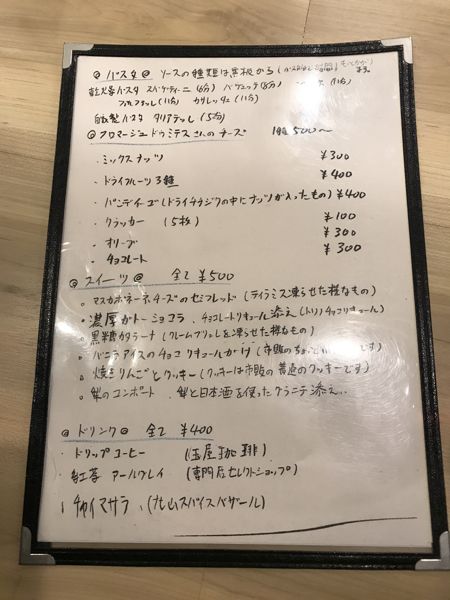 @ パスタ@ ソースの種類は黒板から(
乾燥パスタ スパゲティーニ(6分) バヴェッテ(8分) (11分)
(11分) カサレッチェ(11分)
自家製パスタ タリアテッレ(5分)
@フロマージュドゥミテスさんのチーズ 1種500〜
・ミックスナッツ ¥300
・ドライフルーツ3種 ¥400
・パンデイーゴ(ドライイチジクの中にナッツが入ったもの) ¥400
・クラッカー (5枚) ¥100
・オリーブ ¥300
・チョコレート ¥300
@スイーツ@ 全て ¥500
○マスカルポーネチーズのセミフレッド(ティラミス凍らせた様なもの)
・濃厚ガトーショコラ、チョコレートリキュール添え(トリノチョコリキュール)
○黒糖カタラーナ (クレームブリュレを凍らせた様なもの)
・バニラアイスのチョコリキュールがけ (市販の です)
・焼きりんごとクッキー(クッキーは市販の普通のクッキーです)
・梨のコンポート 梨と日本酒を使ったグラニテ添え...
@ドリンク@ 全て ¥400
・ドリップコーヒー (玉屋珈琲)
・紅茶 アールグレイ (専門店セレクトショップ)
・チャイマサラ、(丸山スパイスバザール)